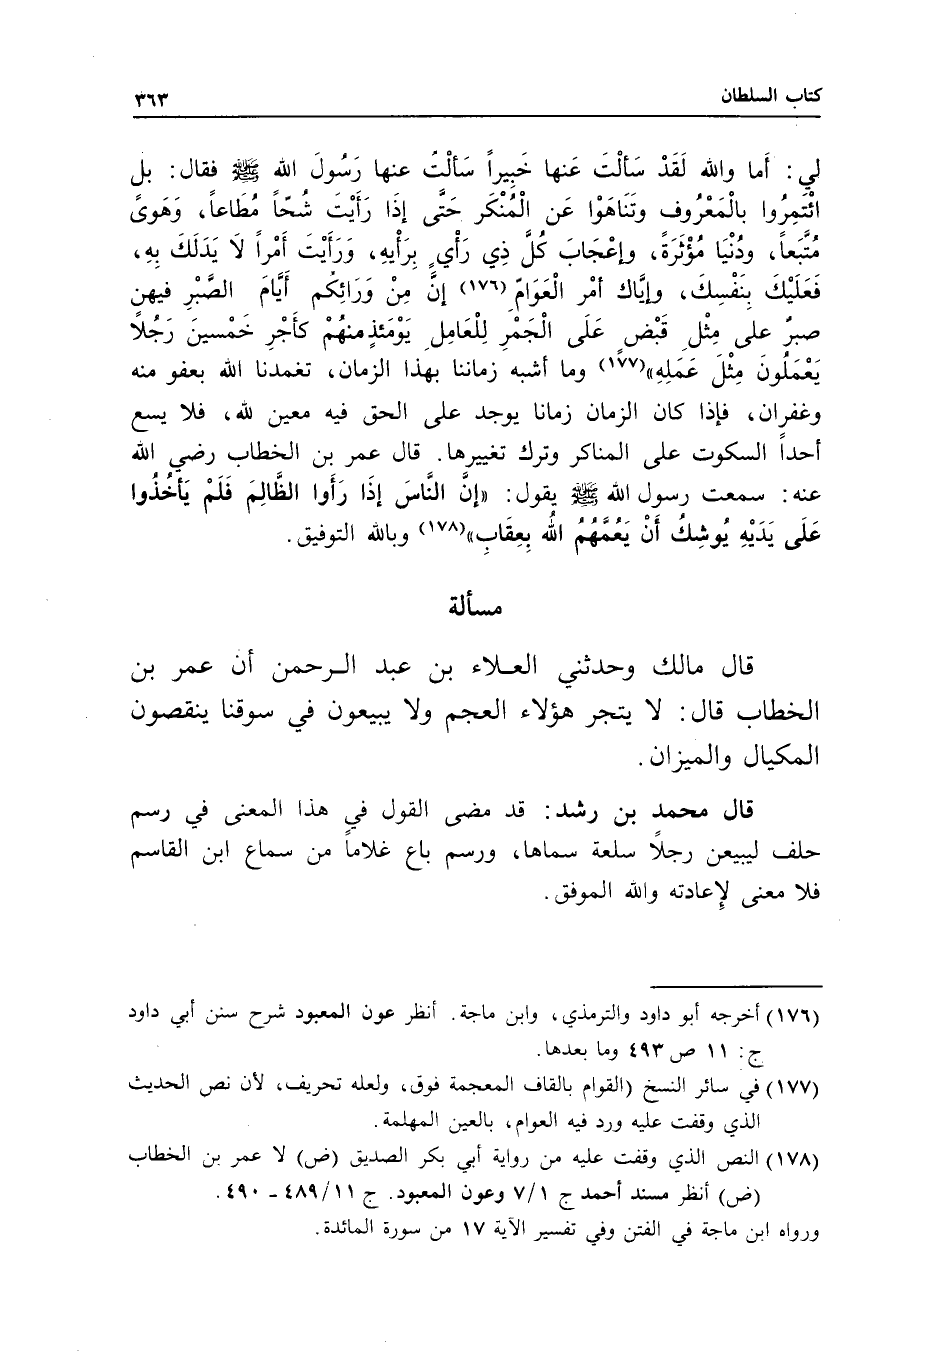 كتاب السلطان ٣٦٣
لي: أَما والله لَقَدْ سَألْتَ عَنها خَبِيراً سَألْتُ عنها رَسُولَ الله ﷺ فقال: بل
ائْتَمِرُوا بالْمَعْرُوف وتَنَاهَوْا عَن الْمُنْكَر حَتَّى إذَا رَأَيْتَ شُحّاً مُطَاعاً، وَهَوىً
مُتَّبَعاً، ودُنْيَا مُؤْثَرَةً، وإعْجَابَ كُلَّ ذِي رَأْيٍ بِرَأْيهِ، وَرَأَيْتَ أَمْراً لَا يَدَلَكَ بِهِ،
فَعَلَيْكَ بِنَفْسِكَ، وإيَّاك أمْر الْعَوَامّ(١٧٦) إنَّ مِنْ وَرَائِكُم أَيَّامَ الصَّبْرِ فيهن
صبرٌ على مِثْلِ قَبْضٍ عَلَى الْجَمْرِ لِلْعَامِلِ يَوْمَئذٍ مِنهُمْ كَأجْرِ خَمْسينَ رَجُلًا
يَعْمَلُونَ مِثْلَ عَمَلِهِ»(١٧٧) وما أشبه زماننا بهذا الزمان، تغمدنا الله بعفو منه
وغفران، فإذا كان الزمان زمانا يوجد على الحق فيه معين لله، فلا يسع
أحداً السكوت على المناكر وترك تغييرها. قال عمر بن الخطاب رضي الله
عنه: سمعت رسول الله ﷺ يقول: «إنَّ النَّاسَ إذَا رَأَوا الظَّالِمَ فَلَمْ يَأخُذُوا
عَلَى يَدَيْهِ يُوشِكُ أَنْ يَعُمَّهُمُ اللهُ بِعِقَابٍ»(١٧٨) وبالله التوفيق.
مسألة
قال مالك وحدثني العلاء بن عبد الرحمن أن عمر بن
الخطاب قال: لا يتجر هؤلاء العجم ولا يبيعون في سوقنا ينقصون
المكيال والميزان.
قال محمد بن رشد: قد مضى القول في هذا المعنى في رسم
حلف ليبيعن رجلًا سلعة سماها، ورسم باع غلاماً من سماع ابن القاسم
فلا معنى لإعادته والله الموفق.
(١٧٦) أخرجه أبو داود والترمذي، وابن ماجة. أنظر عون المعبود شرح سنن أبي داود
ج: ١١ ص ٤٩٣ وما بعدها.
(١٧٧) في سائر النسخ (القوام بالقاف المعجمة فوق، ولعله تحريف، لأن نص الحديث
الذي وقفت عليه ورد فيه العوام، بالعين المهلمة.
(١٧٨) النص الذي وقفت عليه من رواية أبي بكر الصديق (ض) لا عمر بن الخطاب
(ض) أنظر مسند أحمد ج ٧/١ وعون المعبود. ج ٤٨٩/١١ - ٤٩٠.
ورواه ابن ماجة في الفتن وفي تفسير الآية ١٧ من سورة المائدة.